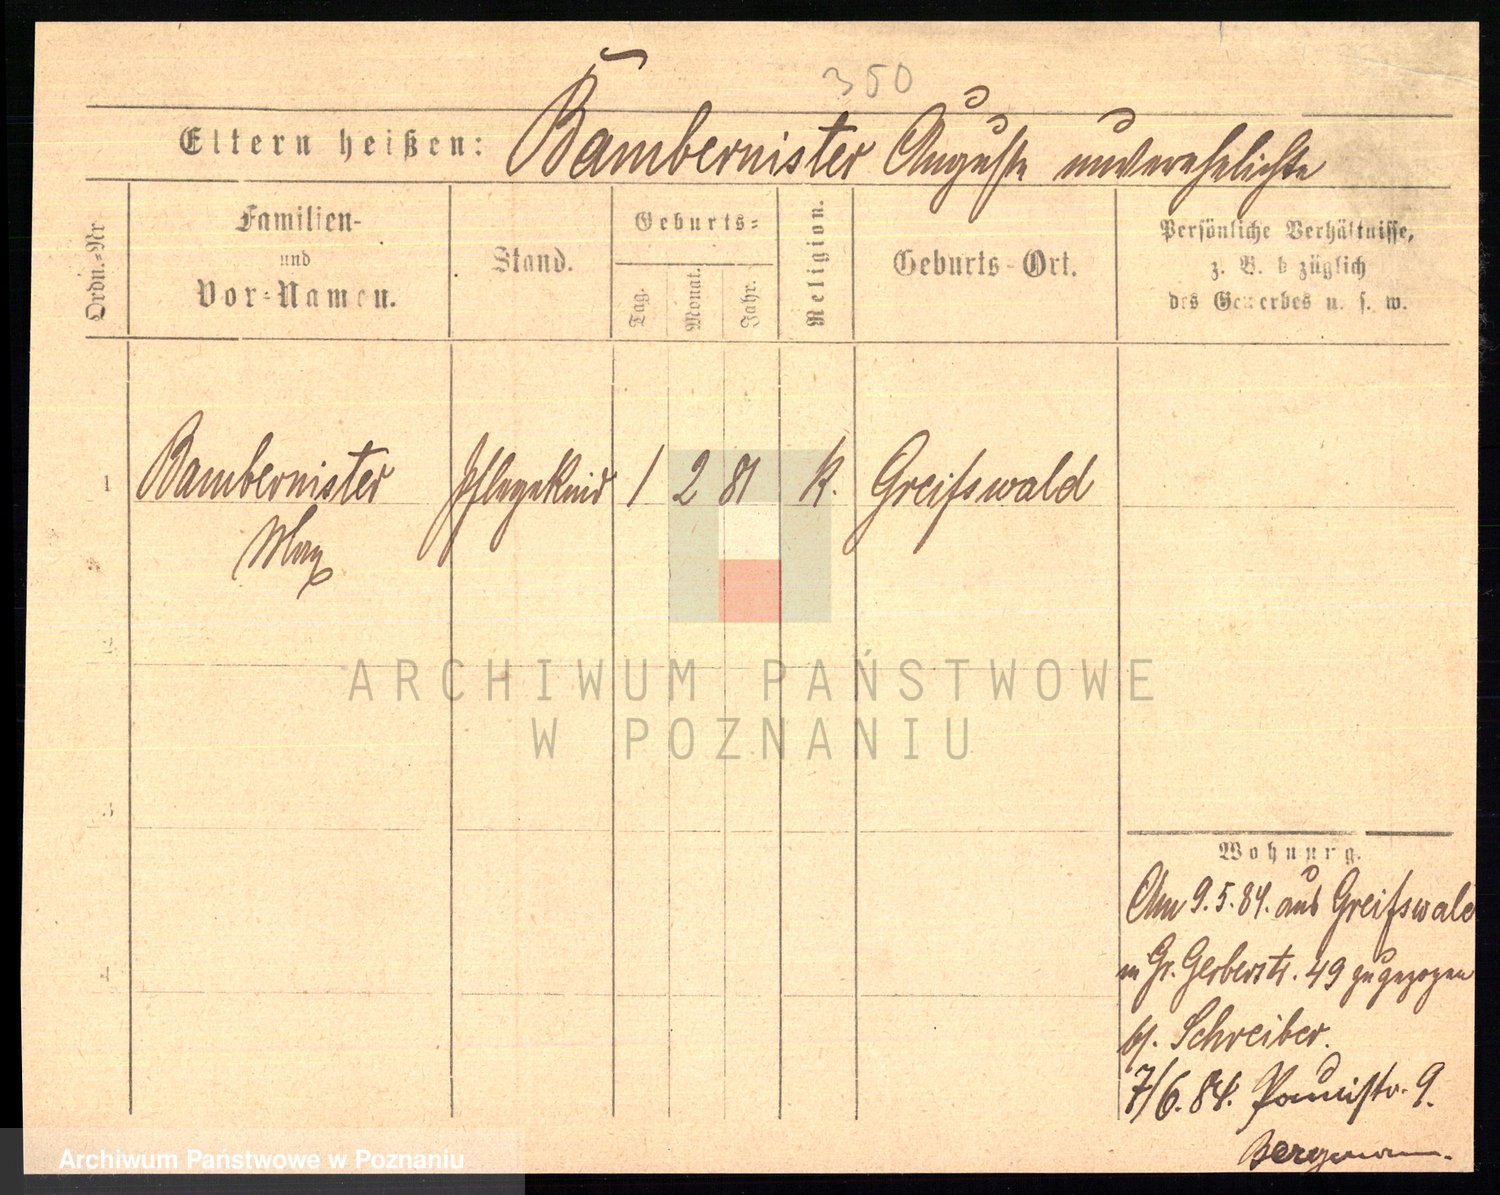 350
Eltern heißen: Bambernister Auguste unverehelichte
Ordn.-Nr
Familien-
und
Vor-Namen.
Stand.
Geburts-
Tag.
Monat.
Jahr.
Religion.
Geburts-Ort.
Persönliche Verhältnisse,
z. B. b züglich
des Gewerbes u. s. w.
1 Bambernister Pflegekind 1 2 81 k. Greifswald
Max
2
3
4
ARCHIWUM PAŃSTWOWE
W POZNANIU
Wohnung.
Am 9.5.84. aus Greifswald
in Gr. Gerberstr. 49 zugezogen
bei Schreiber.
7/6. 84. 9.
Bergmann.
Archiwum Państwowe w Poznaniu